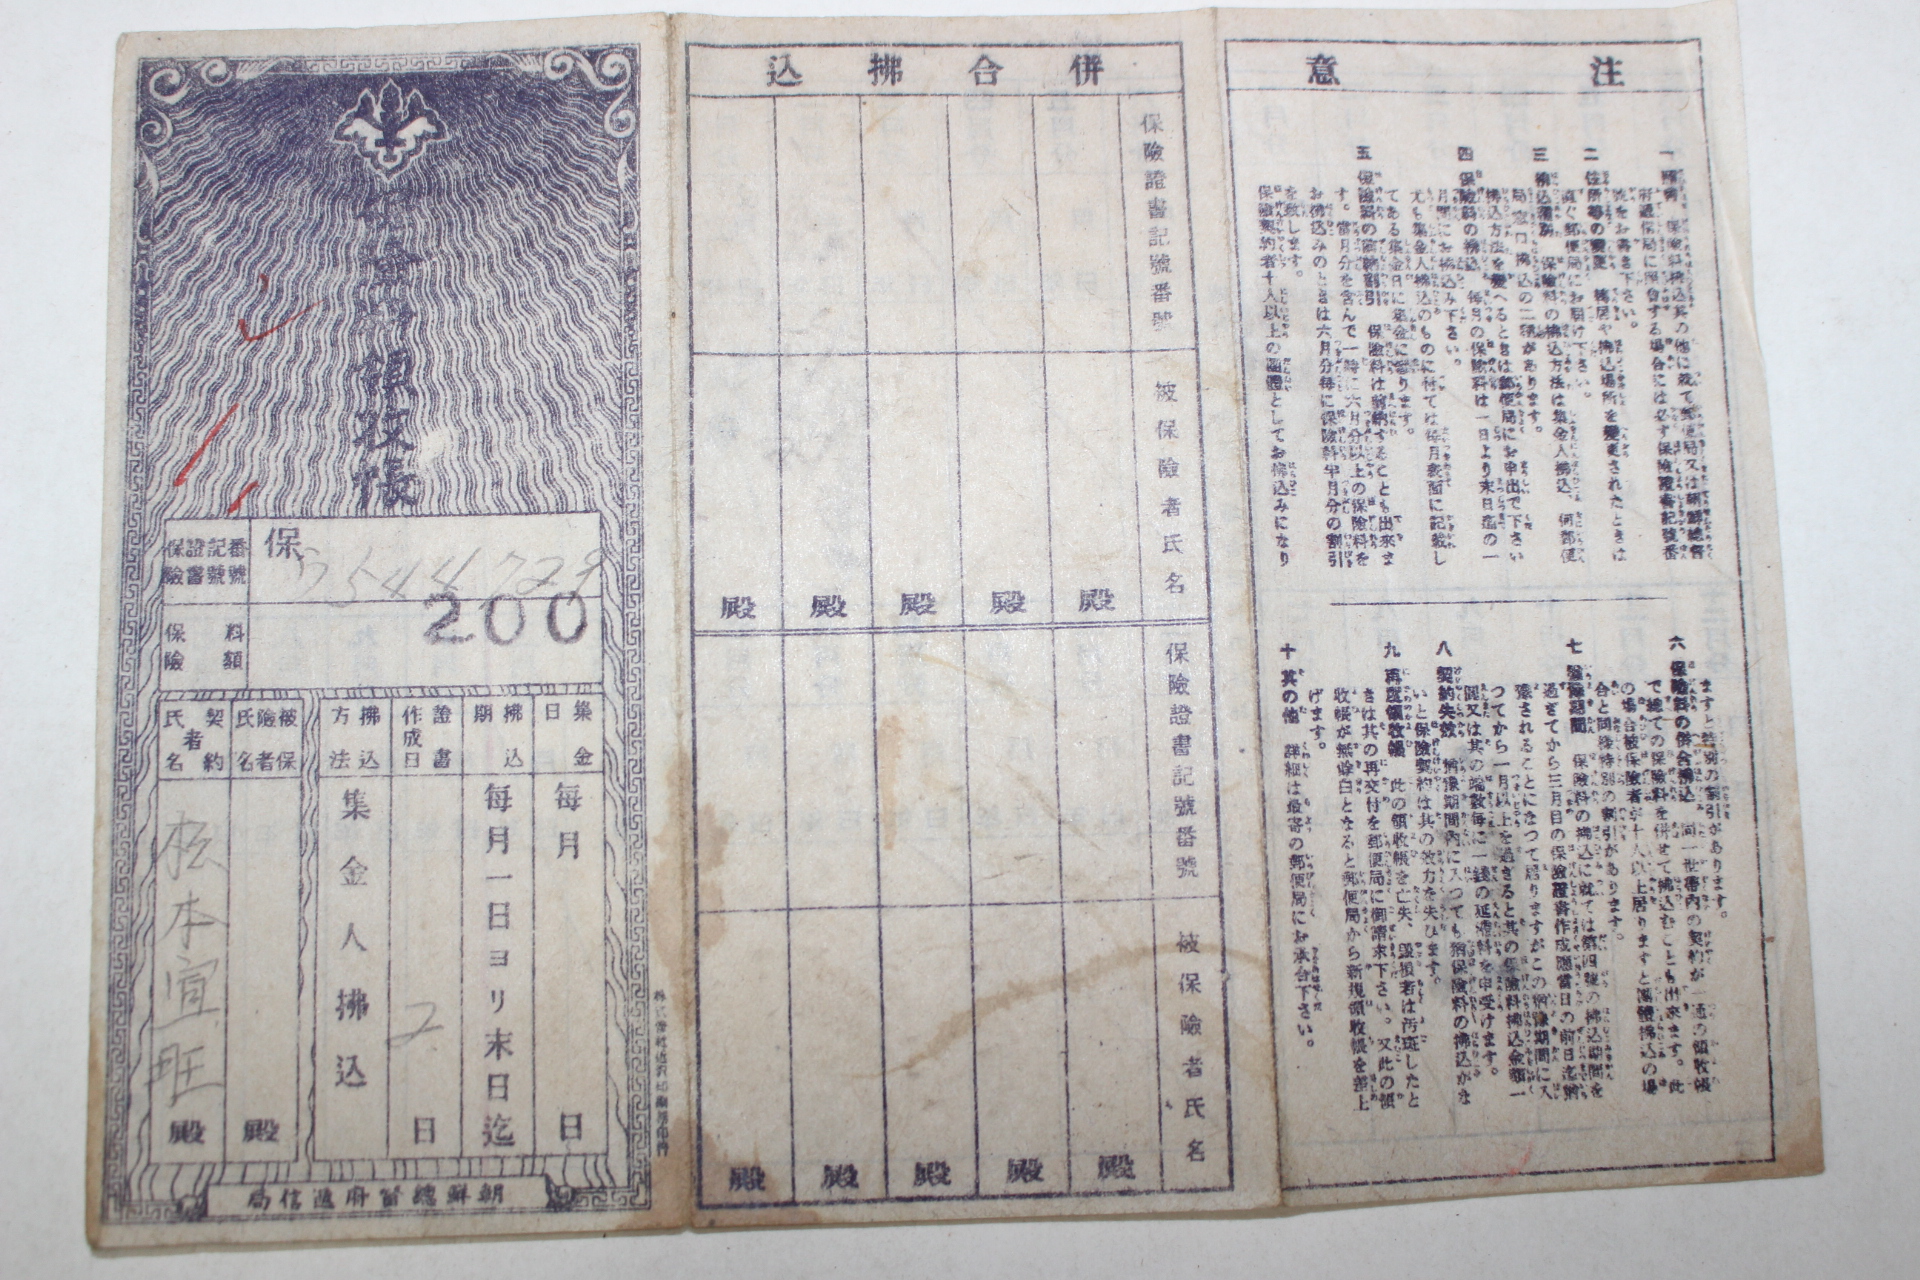 保險料領收帳
保險證書記號番號
保
544
保險料額
200
集金日
每月
日
拂込期
每月一日ヨリ末日迄
證書作成日
2
日
拂込方法
集金人拂込
被保險者氏名
殿
契約者氏名
松本宣旺
殿
朝鮮總督府遞信局
併合拂込
保險證書記號番號
被保險者氏名
殿
殿
殿
殿
殿
保險證書記號番號
被保險者氏名
殿
殿
殿
殿
殿
注意
府遞信局に照會する場合には必ず保險證書記號番
號をお書き下さい。
二 住所等の變更 轉居や拂込場所を變更されたときは
直ぐ郵便局にお屆け下さい。
三 拂込種別 保險料の拂込方法は集金人拂込、何郵便
局窓口拂込の二種があります。
拂込方法を變へるときは郵便局にお申出で下さい
四 保險料の拂込 每月の保險料は一日より末日迄の一
月間にお拂込み下さい。
尤も集金人拂込のものに付ては每月表面に記載し
てある集金日に集金に參ります。
五 保險料の前納割引 保險料は前納することも出來ま
す。當月分を含んで一時に六月分以上の保險料を
お拂込みのときは六月分每に保險料半月分の割引
を致します。
保險契約者十人以上の團體としてお拂込みになり
ますと特別の割引があります。
六 保險料の併合拂込 同一世帶內の契約が一通の領收帳
で總ての保險料を併せて拂込むことも出來ます。此
の場合被保險者が十人以上居りますと團體拂込の場
合と同樣特別の割引があります。
七 猶豫期間 保險料の拂込に就ては第四號の拂込期間を
過ぎてから三月目の保險證書作成應當日の前日迄猶
豫されることになつて居りますがこの猶豫期間に入
つてから一月以上を過ぎると其の保險料拂込金額一
圓又は其の端數每に一錢の延滯料を申受けます。
八 契約失效 猶豫期間內に入つても猶保險料の拂込がな
いと保險契約は其の效力を失ひます。
九 再度領收帳 此の領收帳を亡失、毀損若は汚斑したと
きは其の再交付を郵便局に御請求下さい。又此の領
收帳が無餘白となると郵便局から新規領收帳を差上
げます。
十 其の他 詳細は最寄の郵便局にお承合下さい。